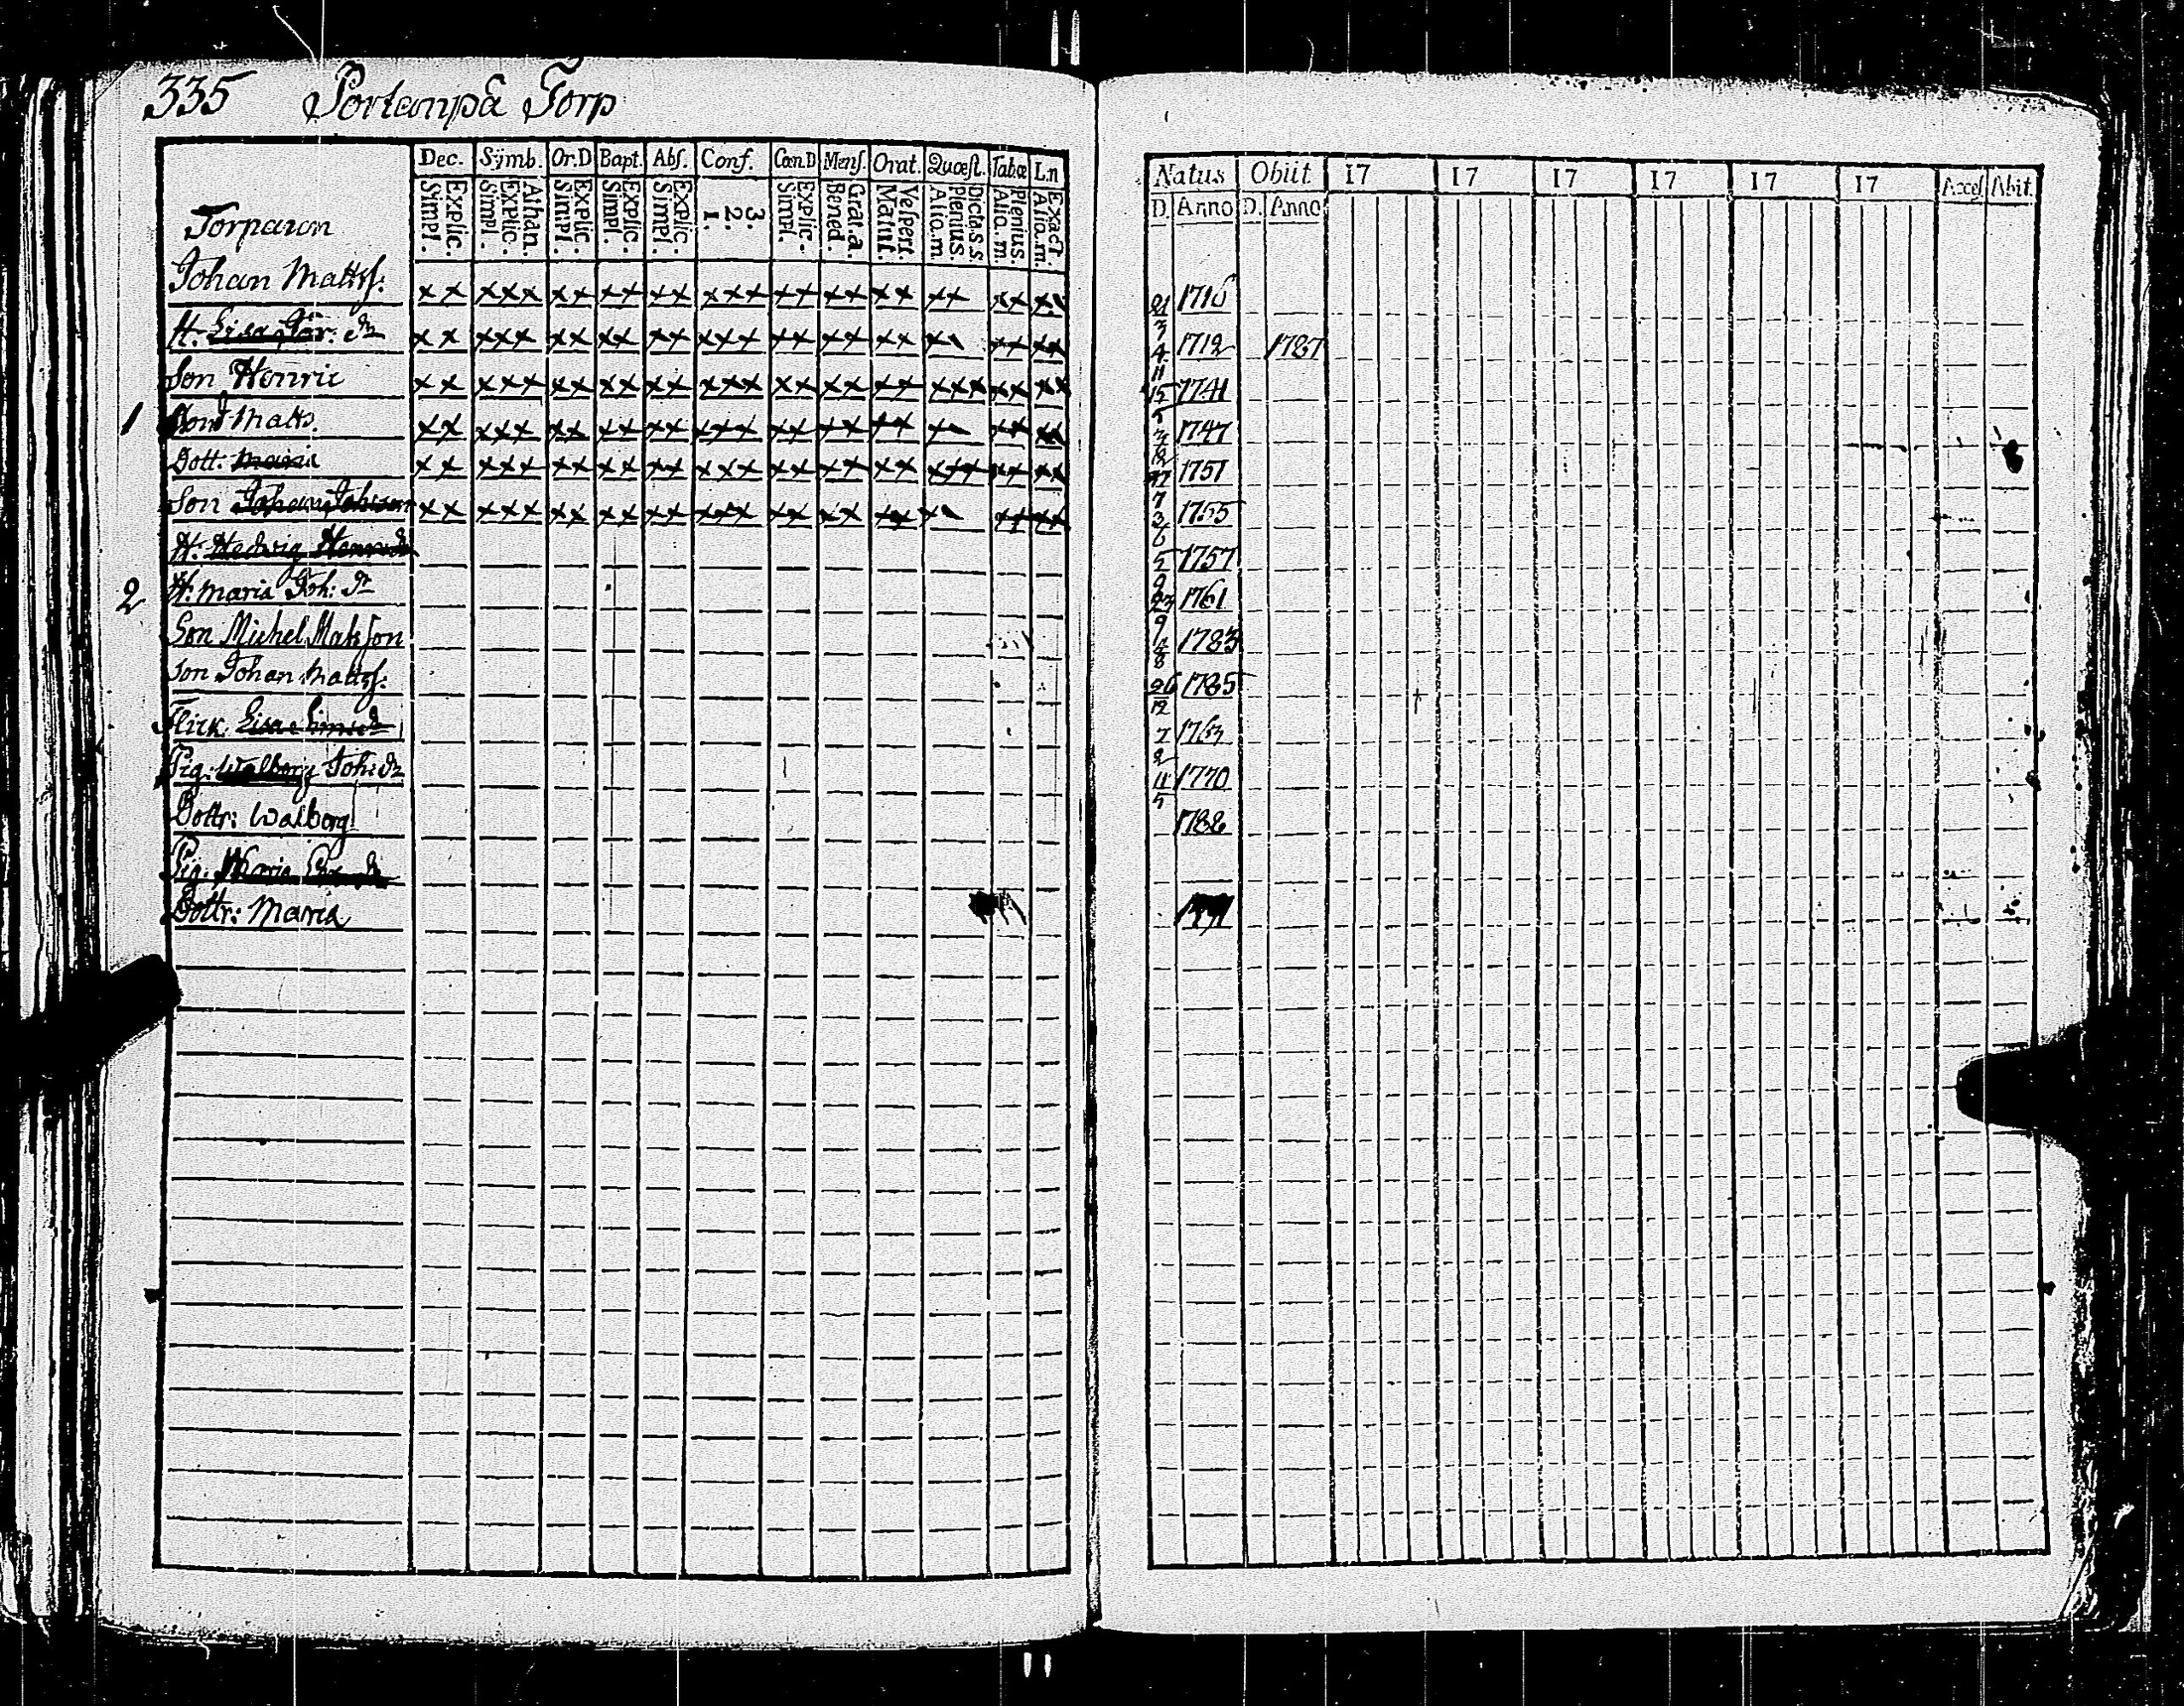 335 Portanpä Torp
Dec. Symb. Or.D Bapt. Abs. Conf. Cœn.D Mens. Orat. Quæst. Tabæ L.n
Explic. Simpl. Athan. Explic. Simpl. Explic. Simpl. Explic. Simpl. Explic. Simpl. 3. 2. 1. Explic. Simpl. Grat.a. Bened. Vespert. Matut. Dicta.s.s. Plenius. Alio.m. Plenius. Alio.m. Exact. Alia.m.
Natus Obiit 17 17 17 17 17 17 Acces Abit.
D. Anno D. Anno
Torparen
Johan Mattss: xx xxx xx xx xx xxx xx xx xx xx xx xx 1716
H. Lisa dr xx xxx xx xx xx xxx xx xx xx xx xx 1712 1787
Son Henric xx xxx xx xx xx xxx xx xx xx xxx xx xx 15 1741
1 Son Matts. xx xxx xx xx xx xxx xx xx xx xx xx 1747
Dott. Maria xx xxx xx xx xx xxx xx xx xx xxx xx xx 1751
Son Johan Johanss xx xxx xx xx xx xxx xx xx xx xx xx 3 1755
H: Hedvig Henr:dr 5 1757
2 H: Maria Joh: dr 1761
Son Michel Matsson 1783
Son Johan Mattss: 26 1785
12
Flick. Lisa Simsdr 7 1763
Pig: Walborg Joh:dr 11 1770
5
Dottr: Walborg 1788
Pig. Maria
Dottr: Maria